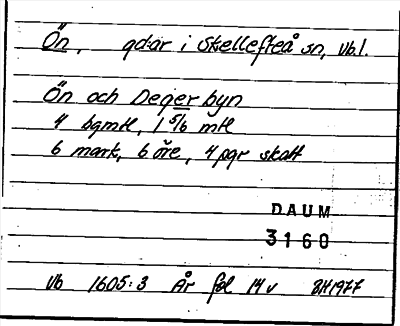 Ön, gdar i Skellefteå sn, Vb l.
Ön och Degerbyn
4 bgmtl, 1 5/6 mtl
6 mark, 6 öre, 4 pgr skatt
DAUM
3160
Vb 1605:3 År fol 14v BH1977